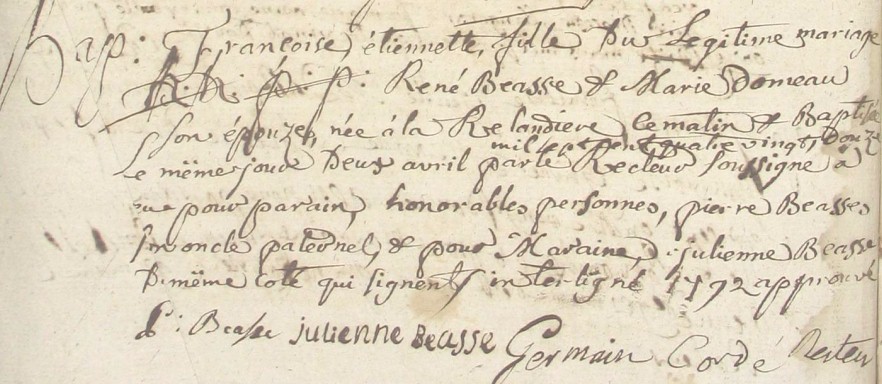 Bap: Françoise étiennette, fille Du Legitime mariage
h: h: p: p: René Beasse & Marie Domeau
Son épouze, née à la Relandiere Ce matin & Baptisé
mil sept cent quatre vingt Douze
le mëme jour Deux avril par le Recteur soussigné a
eu pour parain, honorables personnes, pierre Beasse,
son oncle paternel, & pour Maraine, julienne Beasse
D mëme coté qui signent / inter-ligné 1792 approuvé
P: Beasse julienne Beasse Germain Cordé Recteur